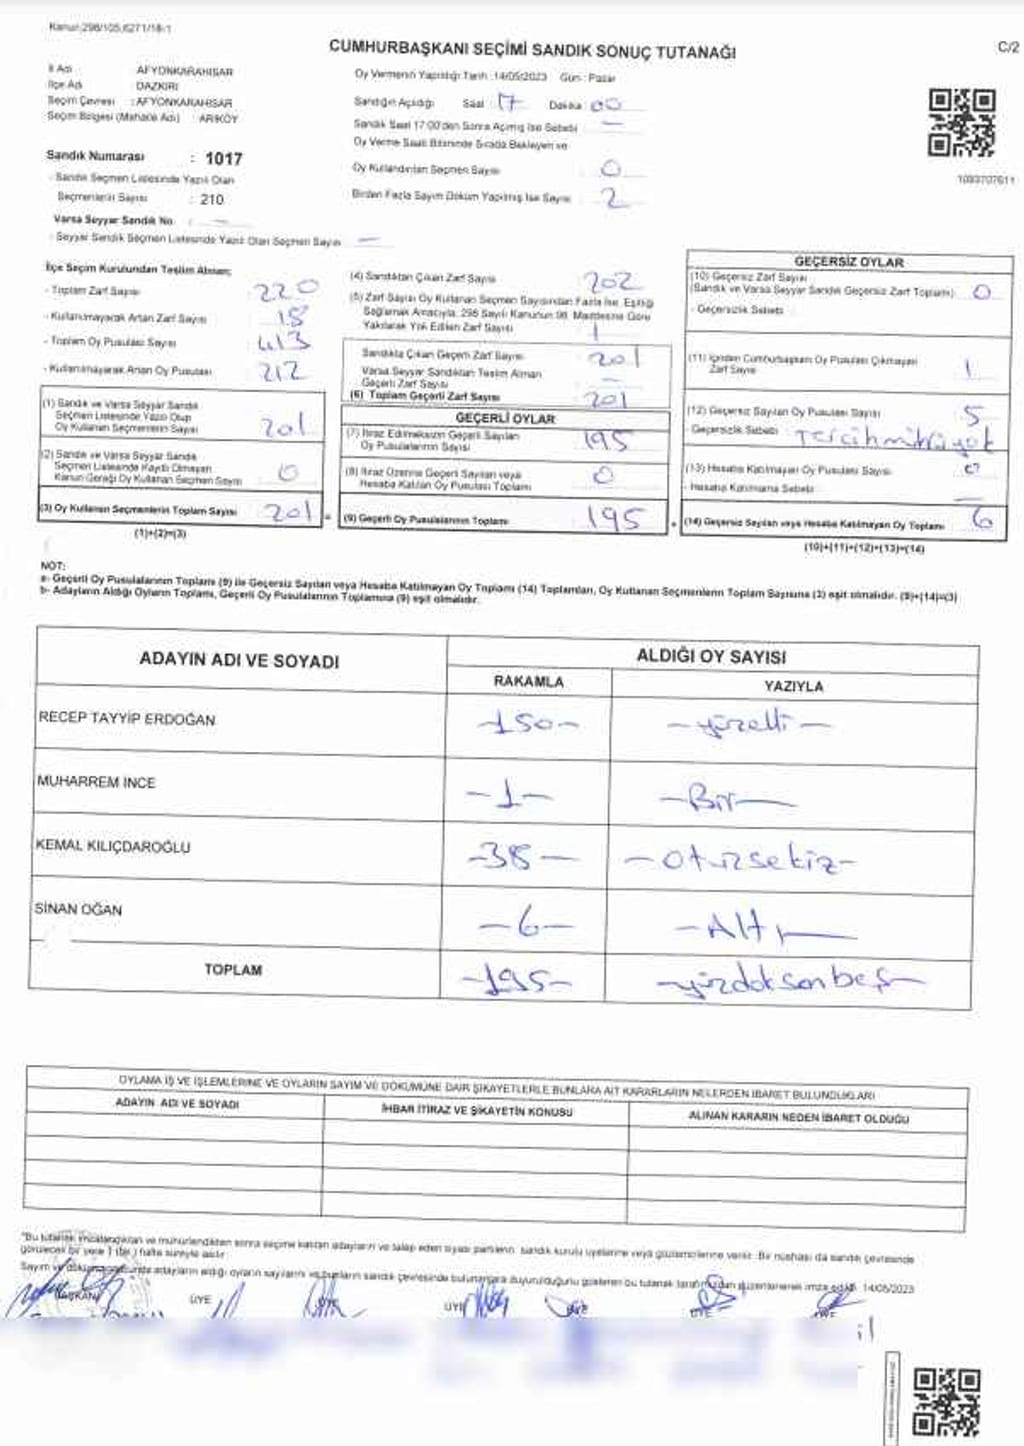 Kanun:298/105,6271/18-1
CUMHURBAŞKANI SEÇİMİ SANDIK SONUÇ TUTANAĞI
C/2
İl Adı : AFYONKARAHİSAR
İlçe Adı : DAZKIRI
Seçim Çevresi : AFYONKARAHİSAR
Seçim Bölgesi (Mahalle Adı) : ARIKÖY
Sandık Numarası : 1017
- Sandık Seçmen Listesinde Yazılı Olan
Seçmenlerin Sayısı : 210
Varsa Seyyar Sandık No : —
- Seyyar Sandık Seçmen Listesinde Yazılı Olan Seçmen Sayısı —
Oy Vermenin Yapıldığı Tarih :14/05/2023 Gün : Pazar
Sandığın Açıldığı Saat 17 Dakika : 00
Sandık Saat 17:00'den Sonra Açımış İse Sebebi : —
Oy Verme Saati Bitiminde Sırada Bekleyen ve
Oy Kullandırılan Seçmen Sayısı : 0
Birden Fazla Sayım Döküm Yapılmış İse Sayısı : 2
1093707611
İlçe Seçim Kurulundan Teslim Alınan;
- Toplam Zarf Sayısı : 220
- Kullanılmayarak Artan Zarf Sayısı : 18
- Toplam Oy Pusulası Sayısı : 413
- Kullanılmayarak Artan Oy Pusulası : 212
(1) Sandık ve Varsa Seyyar Sandık
Seçmen Listesinde Yazılı Olup
Oy Kullanan Seçmenlerin Sayısı : 201
(2) Sandık ve Varsa Seyyar Sandık
Seçmen Listesinde Kayıtlı Olmayan
Kanun Gereği Oy Kullanan Seçmen Sayısı : 0
(3) Oy Kullanan Seçmenlerin Toplam Sayısı : 201 =
(1)+(2)=(3)
(4) Sandıktan Çıkan Zarf Sayısı : 202
(5) Zarf Sayısı Oy Kullanan Seçmen Sayısından Fazla İse, Eşitliği
Sağlamak Amacıyla, 298 Sayılı Kanunun 98. Maddesine Göre
Yakılarak Yok Edilen Zarf Sayısı : 1
Sandıkta Çıkan Geçerli Zarf Sayısı : 201
Varsa Seyyar Sandıktan Teslim Alınan
Geçerli Zarf Sayısı : —
(6) Toplam Geçerli Zarf Sayısı : 201
GEÇERLİ OYLAR
(7) İtiraz Edilmeksizin Geçerli Sayılan
Oy Pusulalarının Sayısı : 195
(8) İtiraz Üzerine Geçerli Sayılan veya
Hesaba Katılan Oy Pusulası Toplamı : 0
(9) Geçerli Oy Pusulalarının Toplamı : 195 +
GEÇERSİZ OYLAR
(10) Geçersiz Zarf Sayısı
(Sandık ve Varsa Seyyar Sandık Geçersiz Zarf Toplamı) : 0
- Geçersizlik Sebebi :
(11) İçinden Cumhurbaşkanı Oy Pusulası Çıkmayan
Zarf Sayısı : 1
(12) Geçersiz Sayılan Oy Pusulası Sayısı : 5
- Geçersizlik Sebebi : Tercih mührü yok
(13) Hesaba Katılmayan Oy Pusulası Sayısı : 0
- Hesaba Katılmama Sebebi : —
(14) Geçersiz Sayılan veya Hesaba Katılmayan Oy Toplamı : 6
(10)+(11)+(12)+(13)=(14)
NOT:
a- Geçerli Oy Pusulalarının Toplamı (9) ile Geçersiz Sayılan veya Hesaba Katılmayan Oy Toplamı (14) Toplamları, Oy Kullanan Seçmenlerin Toplam Sayısına (3) eşit olmalıdır. (9)+(14)=(3)
b- Adayların Aldığı Oyların Toplamı, Geçerli Oy Pusulalarının Toplamına (9) eşit olmalıdır.
ADAYIN ADI VE SOYADI ALDIĞI OY SAYISI
RAKAMLA YAZIYLA
RECEP TAYYİP ERDOĞAN -150- -yüzelli-
MUHARREM İNCE -1- -Bir-
KEMAL KILIÇDAROĞLU -38- -otuzsekiz-
SİNAN OĞAN -6- -Altı-
TOPLAM -195- -yüzdoksanbeş-
OYLAMA İŞ VE İŞLEMLERİNE VE OYLARIN SAYIM VE DÖKÜMÜNE DAİR ŞİKAYETLERLE BUNLARA AİT KARARLARIN NELERDEN İBARET BULUNDUKLARI
ADAYIN ADI VE SOYADI İHBAR İTİRAZ VE ŞİKAYETİN KONUSU ALINAN KARARIN NEDEN İBARET OLDUĞU
"Bu tutanak imzalandıktan ve mühürlendikten sonra seçime katılan adayların ve talep eden siyasi partilerin sandık kurulu üyelerine veya gözlemcilerine verilir. Bir nüshası da sandık çevresinde
görülecek bir yere 1 (bir) hafta süreyle asılır.
Sayım ve dökümü sonunda adayların aldığı oyların sayılarını ve bunların sandık çevresinde bulunanlara duyurulduğunu gösteren bu tutanak tarafımızdan düzenlenerek imza edildi. 14/05/2023
BAŞKAN ÜYE ÜYE ÜYE ÜYE ÜYE ÜYE